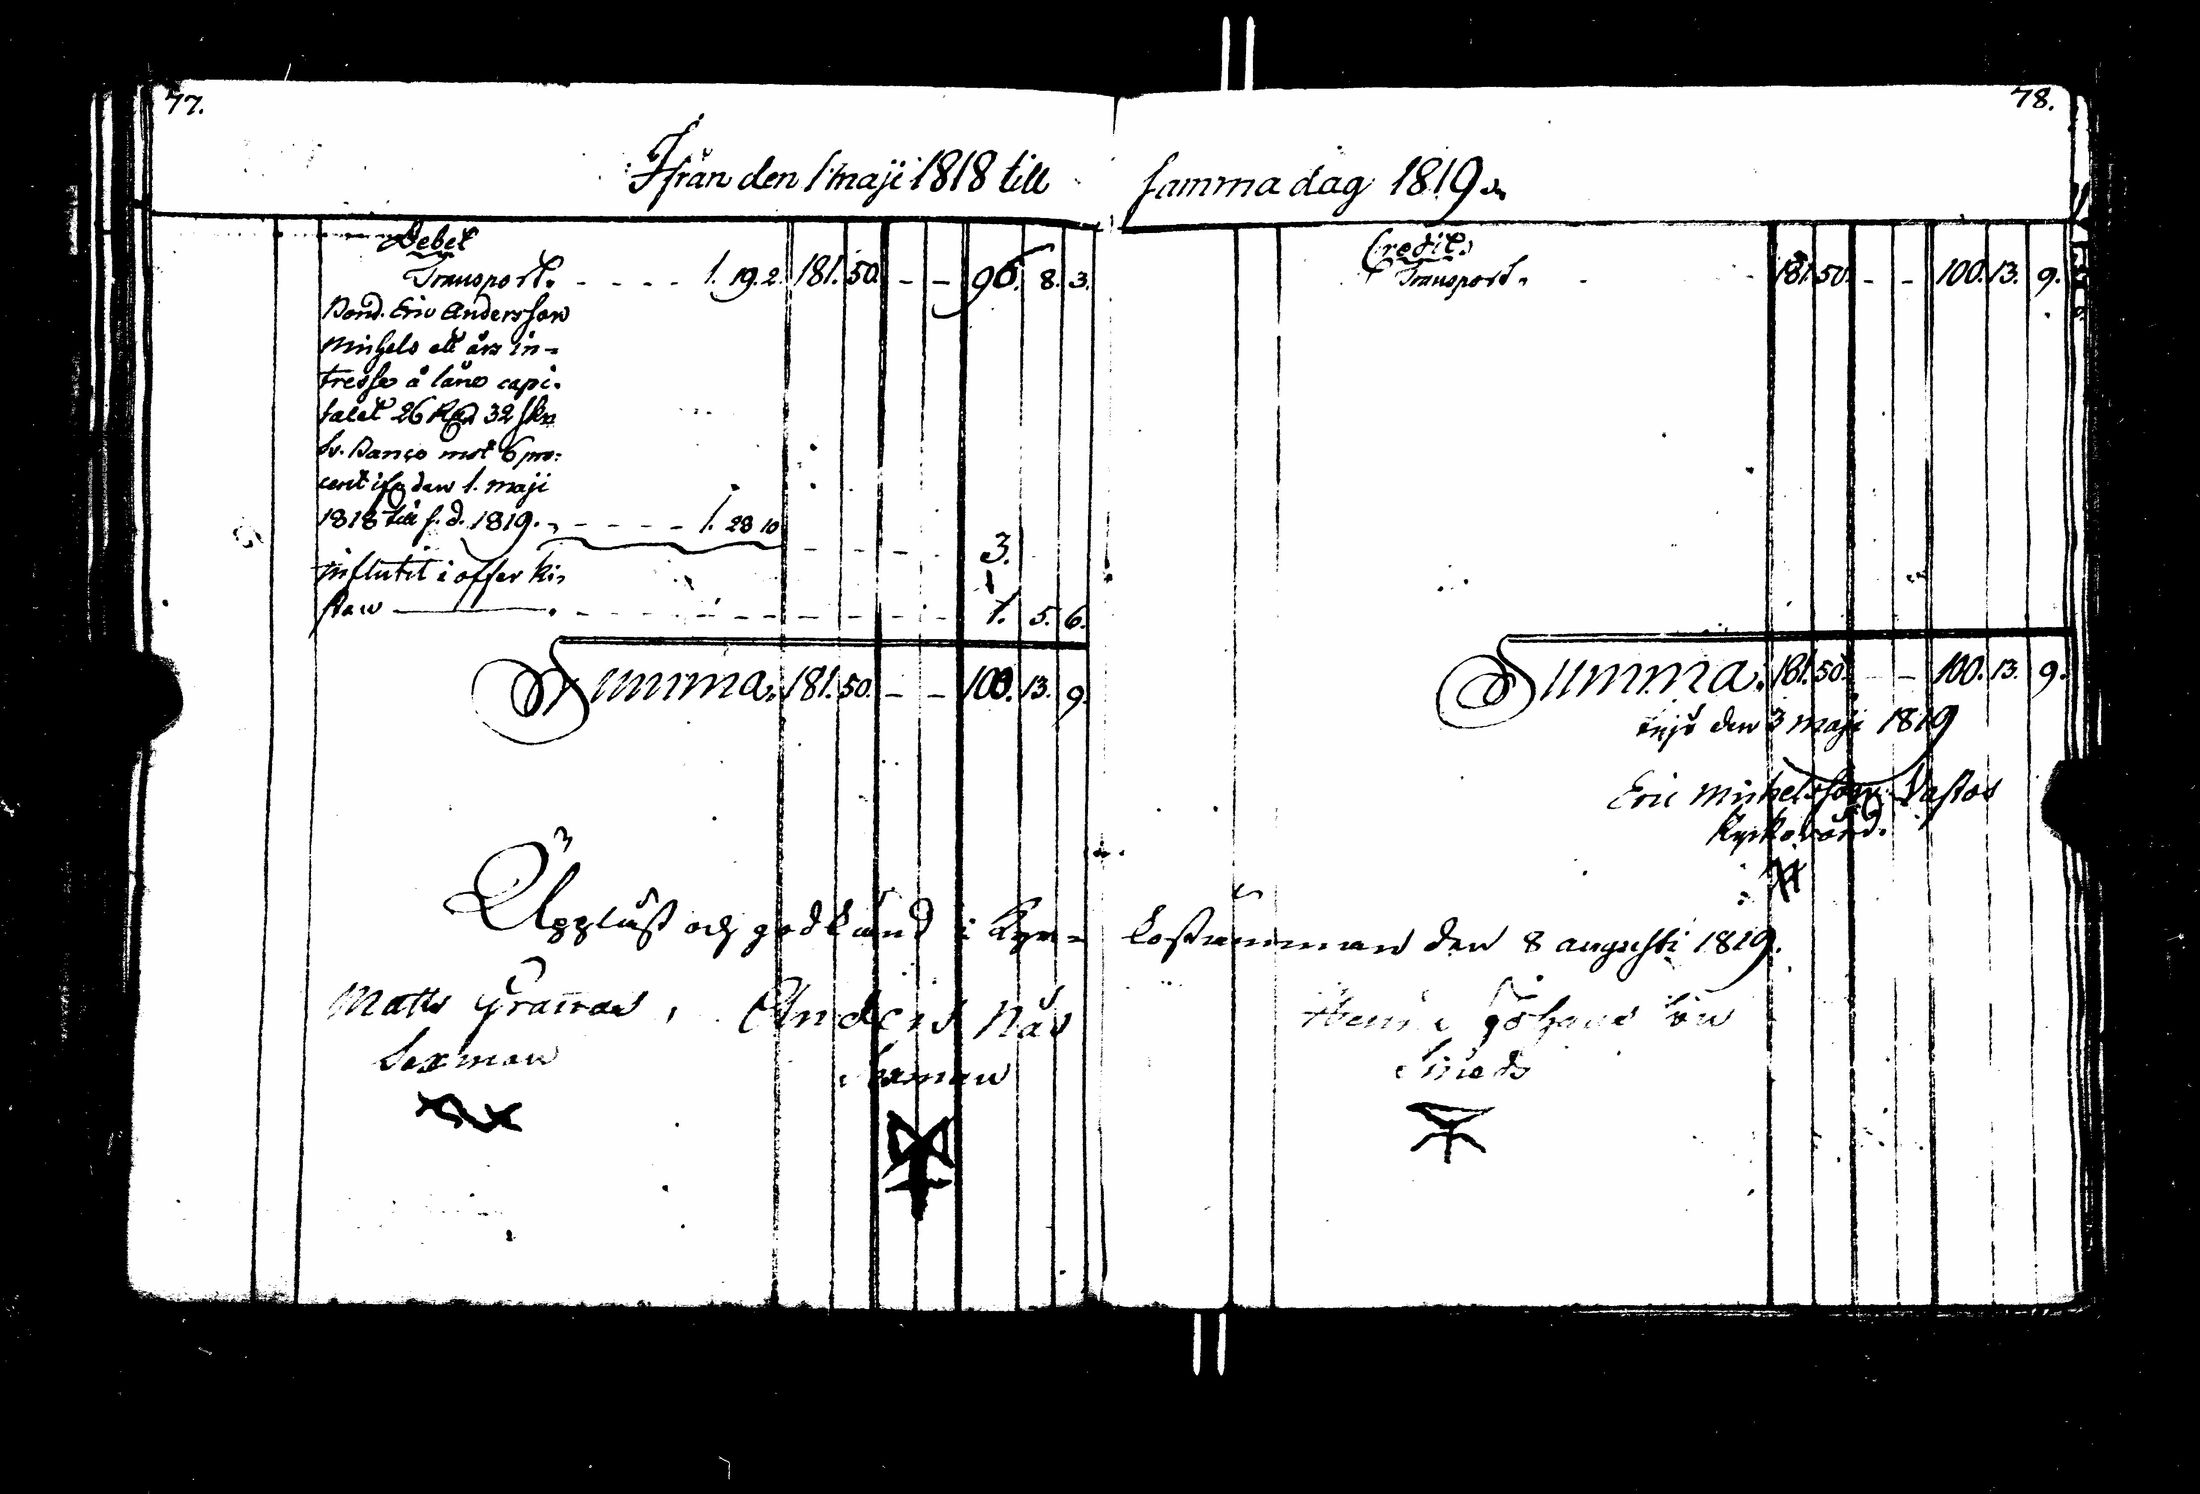 77.
Ifrån den 1 maji 1818 till
Debet
Transport. - - - - 1. 19. 2. 181. 50. - - 96. 8. 3.
Bond. Eric Andersson
Michels ett års in-
tresse å låne capi-
talet 26 Rd 32 sk
sv. Banco mot 6 pro-
cent ifrån den 1. maji
1818 till s. d. 1819. - - - - 1. 28 10
- - - - 3.
Influtit i offer kis
stan - - - - - - 1. 5. 6.
Summa. 181. 50. - - 100. 13. 9.
Uppläst och godkänd i Kyr-
Matts Grannas, Anders Nås
Sexman Sexman
78.
samma dag 1819.
Credit.
Transport. - - 181. 50. - - 100. 13. 9.
Summa. 181. 50. - - 100. 13. 9.
den 3 maji 1819
Eric Michelsson
Kyrkovärd.
kostämman den 8 augusti 1819.